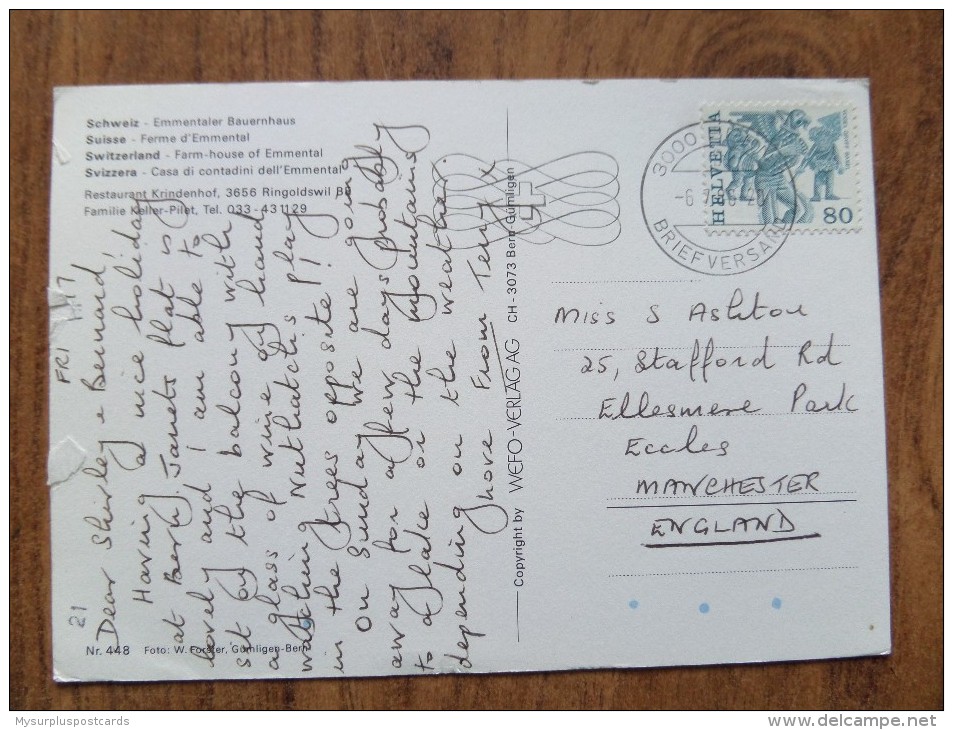 Schweiz - Emmentaler Bauernhaus
Suisse - Ferme d'Emmental
Switzerland - Farm-house of Emmental
Svizzera - Casa di contadini dell'Emmental
Restaurant Krindenhof, 3656 Ringoldswil BE
Familie Keller-Pilet, Tel. 033 - 43 11 29
FRI
21
Dear Shirley & Bernard,
Having a nice holiday
at Bern. Janets flat is
lovely and I am able to
sit on the balcony with
a glass of wine in hand
watching Nuthatches play
in the trees opposite!!
On Sunday we are going
away for a few days probably
to a lake or the mountains
depending on the weather.
love From Terry x
Nr. 448 Foto: W. Forster, Gümligen-Bern
Copyright by WEFO-VERLAG AG CH-3073 Bern-Gümligen
3000
BRIEFVERSAND
HELVETIA
80
Miss S Ashton
25, Stafford Rd
Ellesmere Park
Eccles
MANCHESTER
ENGLAND
Mysurpluspostcards
www.delcampe.net